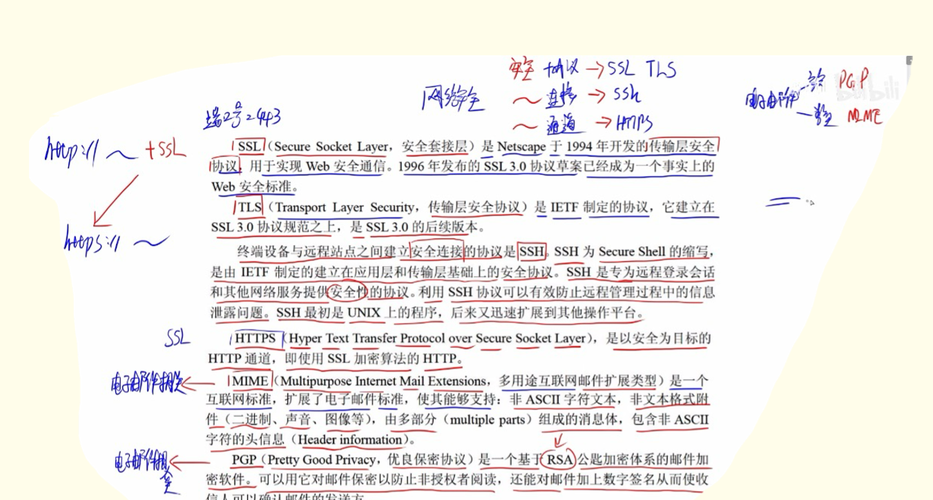 安全 协议 → SSL TLS
网络安全 ~ 连接 → SSh
~ 通道 → HTTPS
电子邮件 PGP
MIME
bilibili
端口号=443
http:// ~ + SSL
https:// ~
SSL（Secure Socket Layer，安全套接层）是 Netscape 于 1994 年开发的传输层安全
协议，用于实现 Web 安全通信。1996 年发布的 SSL 3.0 协议草案已经成为一个事实上的
Web 安全标准。
TLS（Transport Layer Security，传输层安全协议）是 IETF 制定的协议，它建立在
SSL 3.0 协议规范之上，是 SSL 3.0 的后续版本。
终端设备与远程站点之间建立安全连接的协议是 SSH。SSH 为 Secure Shell 的缩写，
是由 IETF 制定的建立在应用层和传输层基础上的安全协议。SSH 是专为远程登录会话
和其他网络服务提供安全性的协议。利用 SSH 协议可以有效防止远程管理过程中的信息
泄露问题。SSH 最初是 UNIX 上的程序，后来又迅速扩展到其他操作平台。
SSL
HTTPS（Hyper Text Transfer Protocol over Secure Socket Layer），是以安全为目标的
HTTP 通道，即使用 SSL 加密算法的 HTTP。
电子邮件相关
MIME（Multipurpose Internet Mail Extensions，多用途互联网邮件扩展类型）是一个
互联网标准，扩展了电子邮件标准，使其能够支持：非 ASCII 字符文本，非文本格式附
件（二进制、声音、图像等），由多部分（multiple parts）组成的消息体，包含非 ASCII
字符的头信息（Header information）。
电子邮件相关
PGP（Pretty Good Privacy，优良保密协议）是一个基于 RSA 公匙加密体系的邮件加
密软件。可以用它对邮件保密以防止非授权者阅读，还能对邮件加上数字签名从而使收
信人可以确认邮件的发送方